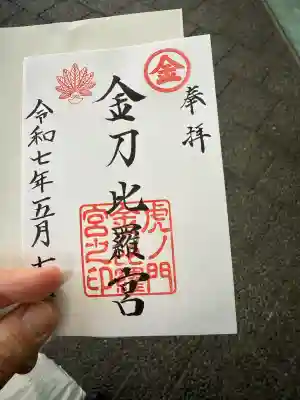 奉拝
金
金刀比羅宮
虎ノ門
金比羅
宮之印
令和七年五月十